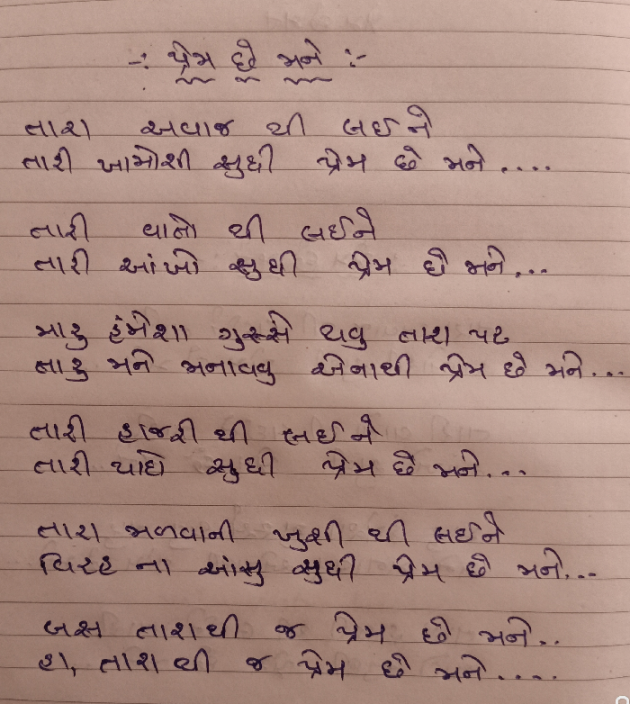 -: પ્રેમ છે મને :-
તારા અવાજ થી લઈને
તારી ખામોશી સુધી પ્રેમ છે મને....
તારી વાતો થી લઈને
તારી આંખો સુધી પ્રેમ છે મને...
મારુ હંમેશા ગુસ્સે થવુ તારા પર
તારુ મને મનાવવુ એનાથી પ્રેમ છે મને...
તારી હાજરી થી લઈને
તારી યાદો સુધી પ્રેમ છે મને...
તારા મળવાની ખુશી થી લઈને
વિરહ ના આંસુ સુધી પ્રેમ છે મને...
બસ તારાથી જ પ્રેમ છે મને..
હા, તારા થી જ પ્રેમ છે મને.....